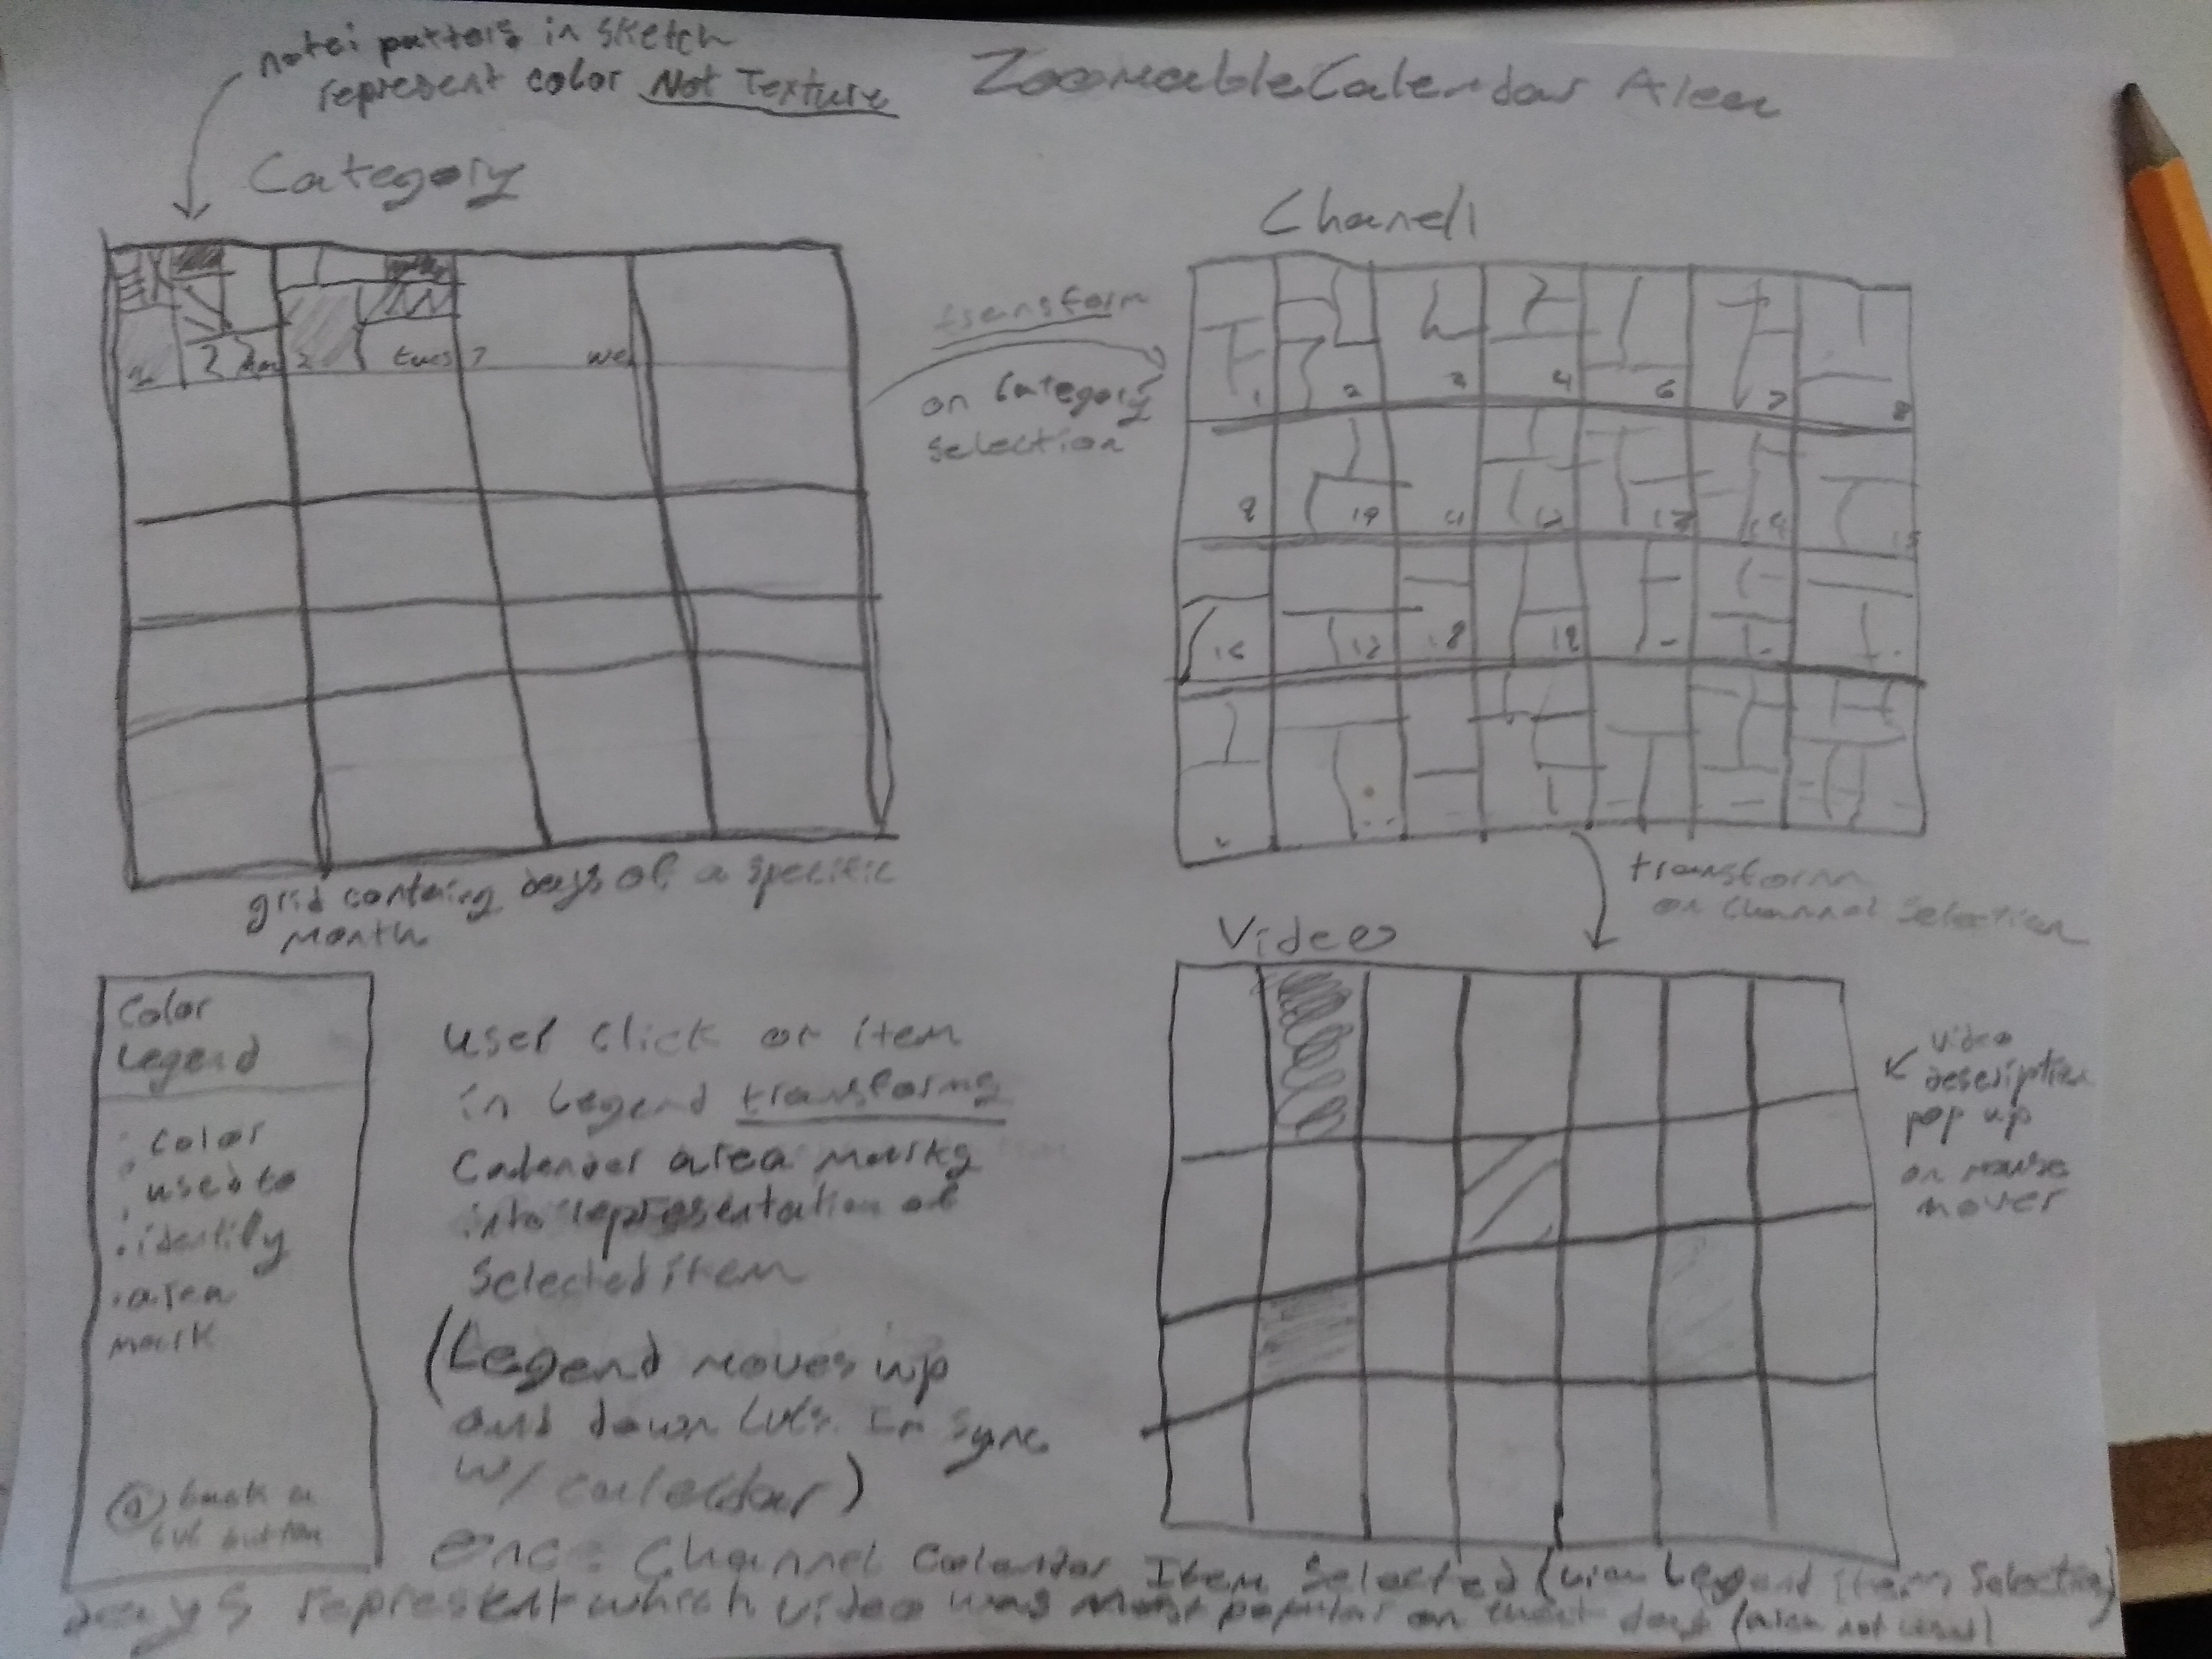 note: patters in sketch
represent color Not Texture
Zoomable Calendar Area
Category
2 Mon 2 tues 7 we
transform
on Category
selection
Chanell
1 2 3 4 6 7 8
9 10 11 12 13 14 15
16 17 18 19
grid containg days of a specific
month
transform
on Channel selection
Videos
video
description
pop up
on mouse
mover
Color
Legend
color
used to
identify
area
mark
back a
lvl button
user click on item
in Legend transforms
Calender area marks
into representation of
Selected item
(Legend moves up
and down lvls. In sync
w/ calendar)
once Channel Calendar Item Selected (via Legend Item Selection)
days represent which video was most popular on that day (area not used)